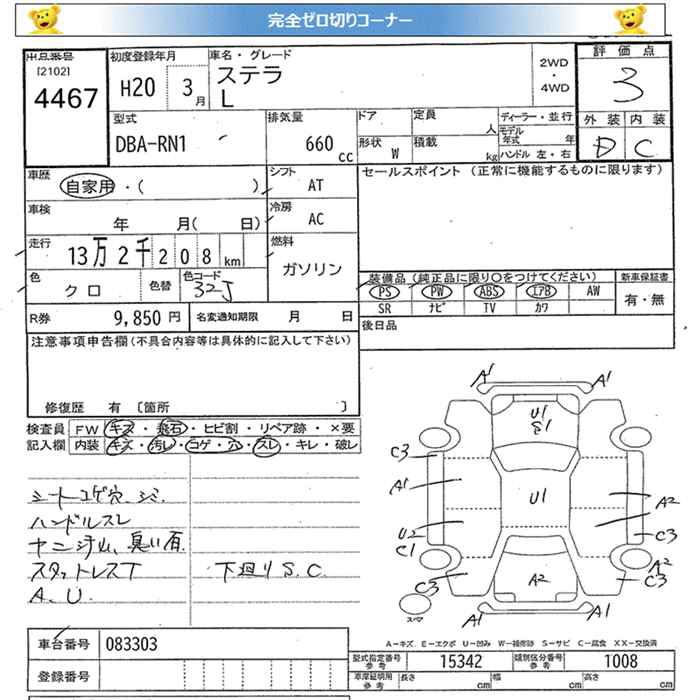 完全ゼロ切りコーナー
出品番号
[2102]
4467
初度登録年月
H20 3 月
車名・グレード
ステラ
L
2WD
・
4WD
評価点
3
外装 内装
D C
型式
DBA-RN1
排気量
660 cc
ドア
定員
人
形状 W
積載
kg
ディーラー・並行
モデル年式 年
ハンドル 左・右
車歴
自家用・( )
シフト
AT
セールスポイント (正常に機能するものに限ります)
車検
年 月( 日)
冷房
AC
走行
13万 2千 208 km
燃料
ガソリン
色
クロ
色替
色コード
32J
装備品(純正品に限り○をつけてください)
新車保証書
PS PW ABS エアB AW
有・無
SR ナビ TV カワ
R券 9,850 円
名変通知期限 月 日
後日品
注意事項申告欄(不具合内容等は具体的に記入して下さい)
修復歴 有 〔箇所 〕
検査員 FW キズ・飛石・ヒビ割・リペア跡・×要
記入欄 内装 キズ・汚レ・コゲ・穴・スレ・キレ・破レ
シートコゲ穴、シミ
ハンドルスレ
ヤニ汚れ、臭い有
スタットレスT
下廻りS.C.
A.U.
A1 A1
U1
S1
C3
A1
U1
A2
U2
C1
C3
C3
A2
A2
C3
A1 A1
スペア
A－キズ E－エクボ U－凹み W－補修跡 S－サビ C－腐食 XX－交換済
車台番号 083303
登録番号
型式指定番号
参考
15342
類別区分番号
参考
1008
車庫証明用
参考
長さ cm 幅 cm 高さ cm